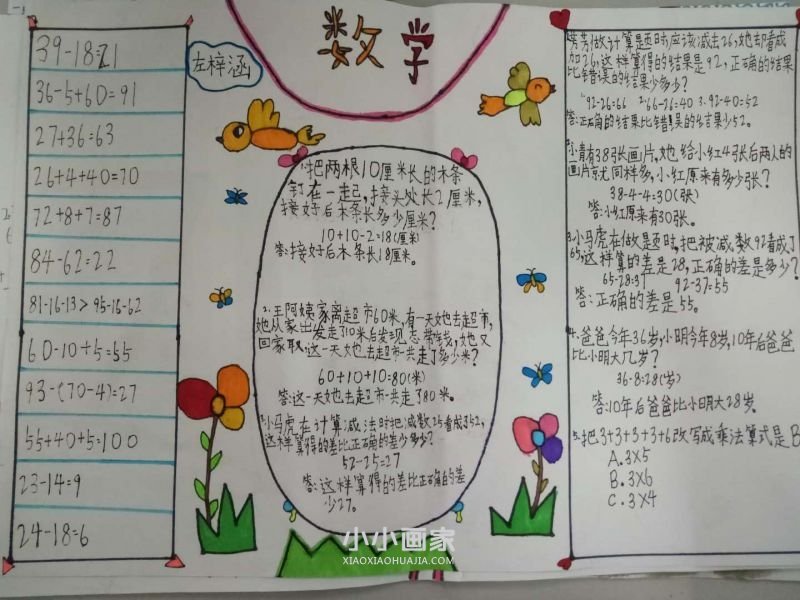 数学
左梓涵
39-18=21
36-5+60=91
27+36=63
26+4+40=70
72+8+7=87
84-62=22
81-16-13>95-16-62
60-10+5=55
93-(70-4)=27
55+40+5=100
23-14=9
24-18=6
1.把两根10厘米长的木条
钉在一起,接头处长2厘米,
接好后木条长多少厘米?
10+10-2=18(厘米)
答:接好后木条长18厘米。
2.王阿姨家离超市60米,有一天她去超市,
她从家出发走了10米后发现忘带钱,她又
回家取,这一天她去超市一共走了多少米?
60+10+10=80(米)
答:这一天她去超市一共走了80米。
3.小马虎在计算减法时把减数25看成了52,
这样算得的差比正确的差少多少?
52-25=27
答:这样算得的差比正确的差
少27。
芳芳做计算是题时应该减去26,她却看成
加26,这样算得的结果是92,正确的结果
比错误的结果少多少?
1.92-26=66 2.66-26=40 3.92-40=52
答:正确的结果比错误的结果少52。
2.小青有38张画片,她给小红4张后两人的
画片就同样多,小红原来有多少张?
38-4-4=30(张)
答:小红原来有30张。
3.小马虎在做是题时,把被减数92看成了
65,这样算的差是28,正确的差是多少?
65-28=37 92-37=55
答:正确的差是55。
4.爸爸今年36岁,小明今年8岁,10年后爸爸
比小明大几岁?
36-8=28(岁)
答:10年后爸爸比小明大28岁。
5.把3+3+3+3+6改写成乘法算式是B
A.3×5
B.3×6
C.3×4
小小画家
XIAOXIAOHUAJIA.COM